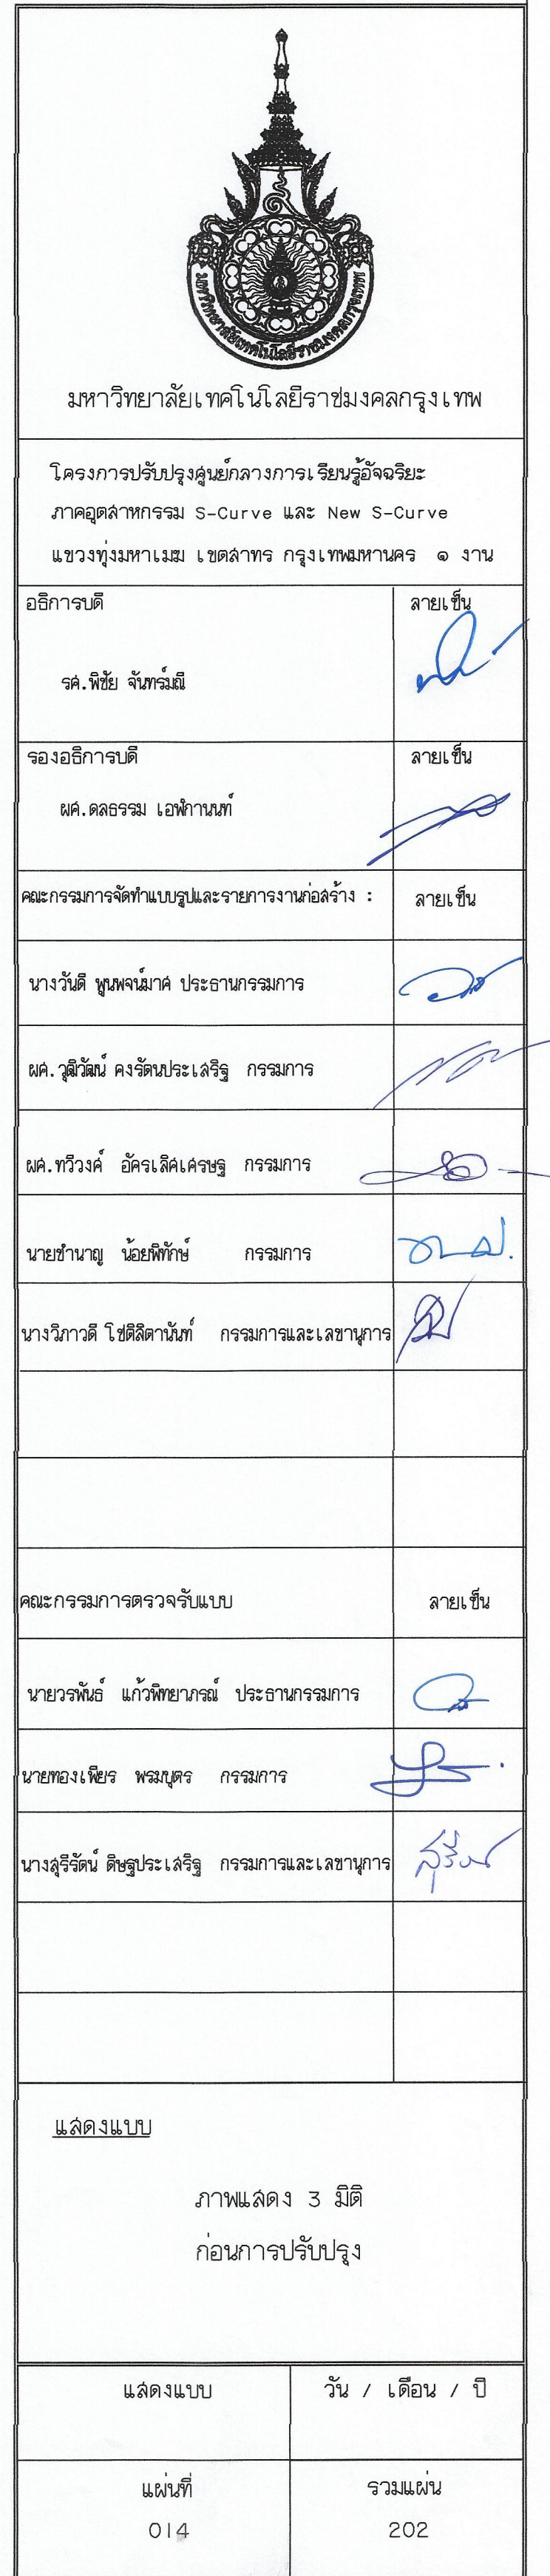 มหาวิทยาลัยเทคโนโลยีราชมงคลกรุงเทพ
มหาวิทยาลัยเทคโนโลยีราชมงคลกรุงเทพ
โครงการปรับปรุงศูนย์กลางการเรียนรู้อัจฉริยะ
ภาคอุตสาหกรรม S-Curve และ New S-Curve
แขวงทุ่งมหาเมฆ เขตสาทร กรุงเทพมหานคร ๑ งาน
อธิการบดี ลายเซ็น
รศ.พิชัย จันทร์มณี
รองอธิการบดี ลายเซ็น
ผศ.ดลธรรม เอฬกานนท์
คณะกรรมการจัดทำแบบรูปและรายการงานก่อสร้าง : ลายเซ็น
นางวันดี พูนพจน์มาศ ประธานกรรมการ
ผศ.วุฒิวัฒน์ คงรัตนประเสริฐ กรรมการ
ผศ.ทวีวงศ์ อัครเลิศเศรษฐ กรรมการ
นายชำนาญ น้อยพิทักษ์ กรรมการ
นางวิภาวดี โชติลิตานันท์ กรรมการและเลขานุการ
คณะกรรมการตรวจรับแบบ ลายเซ็น
นายวรพันธ์ แก้วพิทยาภรณ์ ประธานกรรมการ
นายทองเพียร พรมบุตร กรรมการ
นางสุรีรัตน์ ดิษฐประเสริฐ กรรมการและเลขานุการ สุรีรัตน์
แสดงแบบ
ภาพแสดง 3 มิติ
ก่อนการปรับปรุง
แสดงแบบ วัน / เดือน / ปี
แผ่นที่ รวมแผ่น
014 202